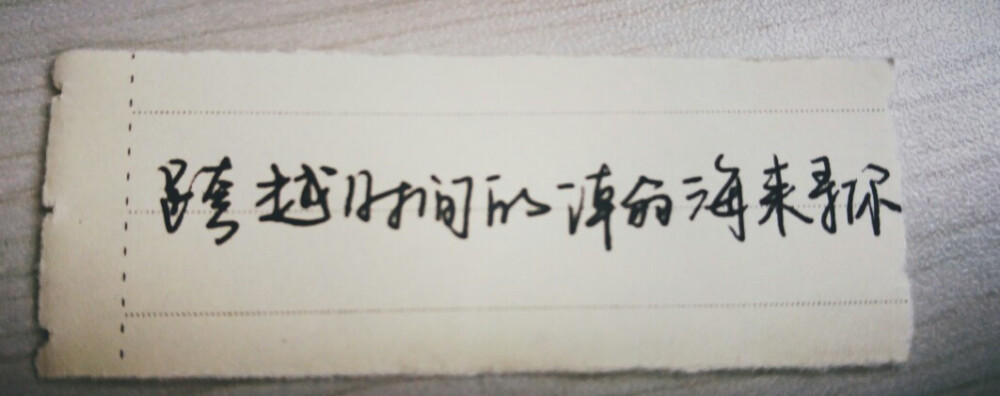 跨越时间的瀚海来寻你